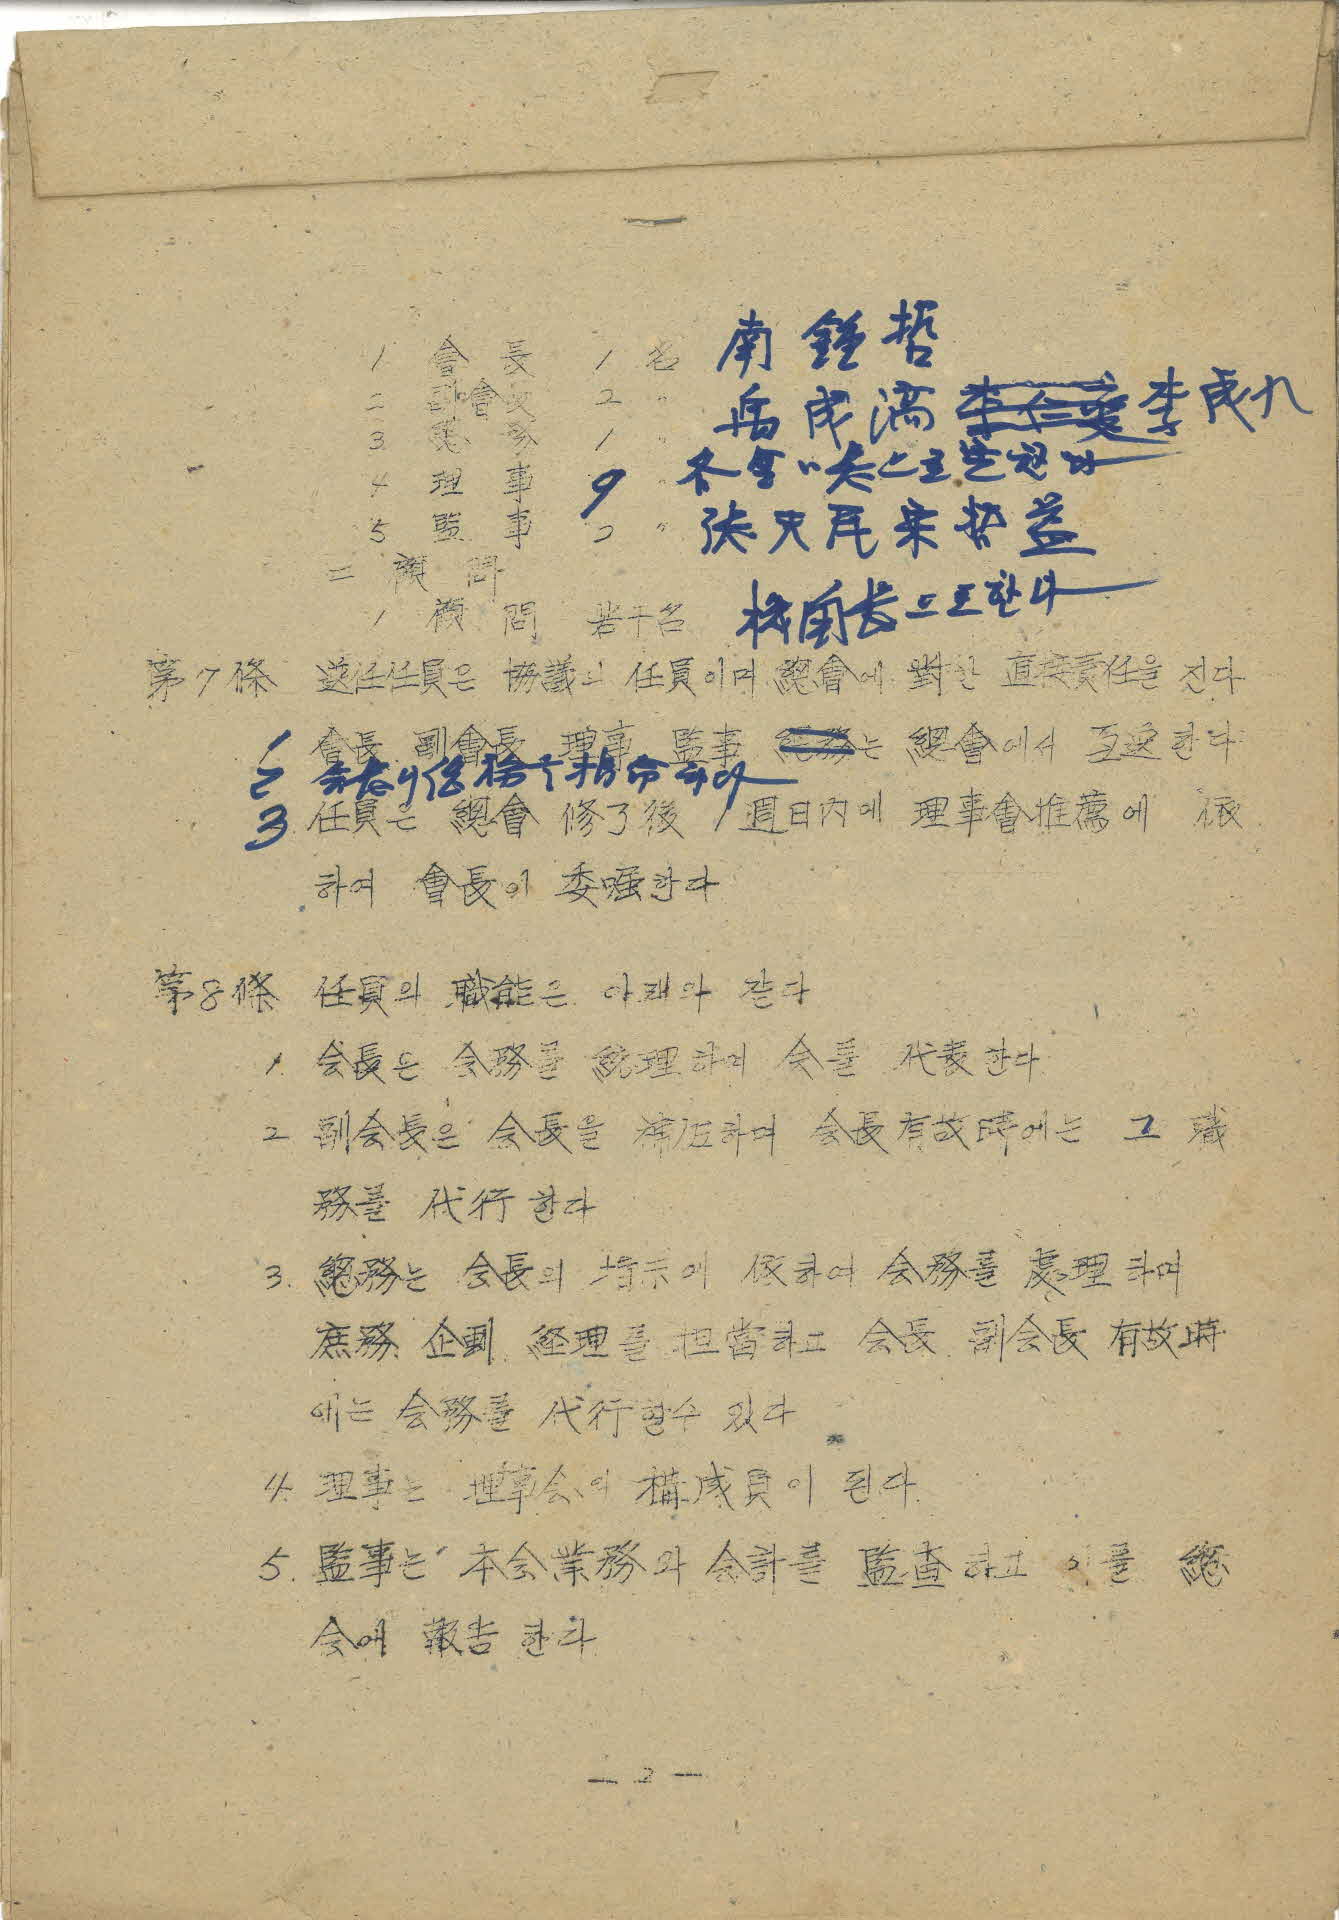 1 會長 1名 南鍾哲
2 副會長 2 〃 成滿 李仁燮 李成九
3 總務 1 〃
4 理事 9 〃 各会
5 監事 2 〃 張天民 宋哲益
二 顧問
1 顧問 若干名 機関長으로한다
第7條 選任任員은 協議의 任員이며 總會에 對한 直接責任을 진다
1 會長 副會長 理事 監事 總務는 總會에서 互選한다
2 会長이 総務를 指命한다
3 任員은 總會 修了後 1週日內에 理事會推薦에 依
하여 會長이 委嘱한다
第8條 任員의 職能은 아래와 같다
1. 会長은 会務를 統理하며 会를 代表한다
2 副会長은 会長을 補佐하며 会長有故時에는 그 職
務를 代行한다
3. 總務는 会長의 指示에 依하여 会務를 處理하며
庶務 企劃 経理를 担當하고 会長 副会長 有故時
에는 会務를 代行할수 있다
4. 理事는 理事会의 構成員이 된다.
5. 監事는 本会業務와 会計를 監査하고 이를 總
会에 報告한다
— 2 —